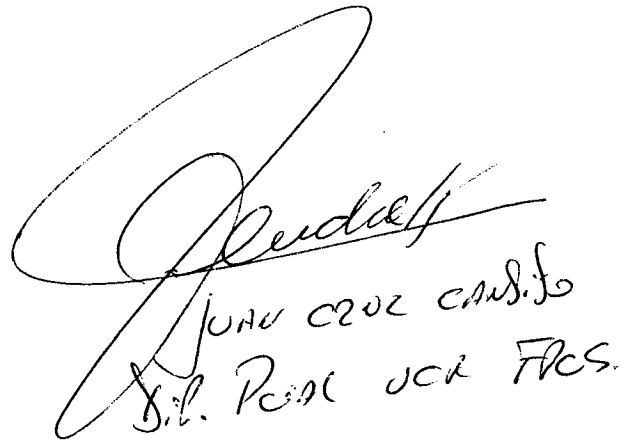 JUAN CRUZ CANDIFO
DIP. PCIAL UCR FPCS.